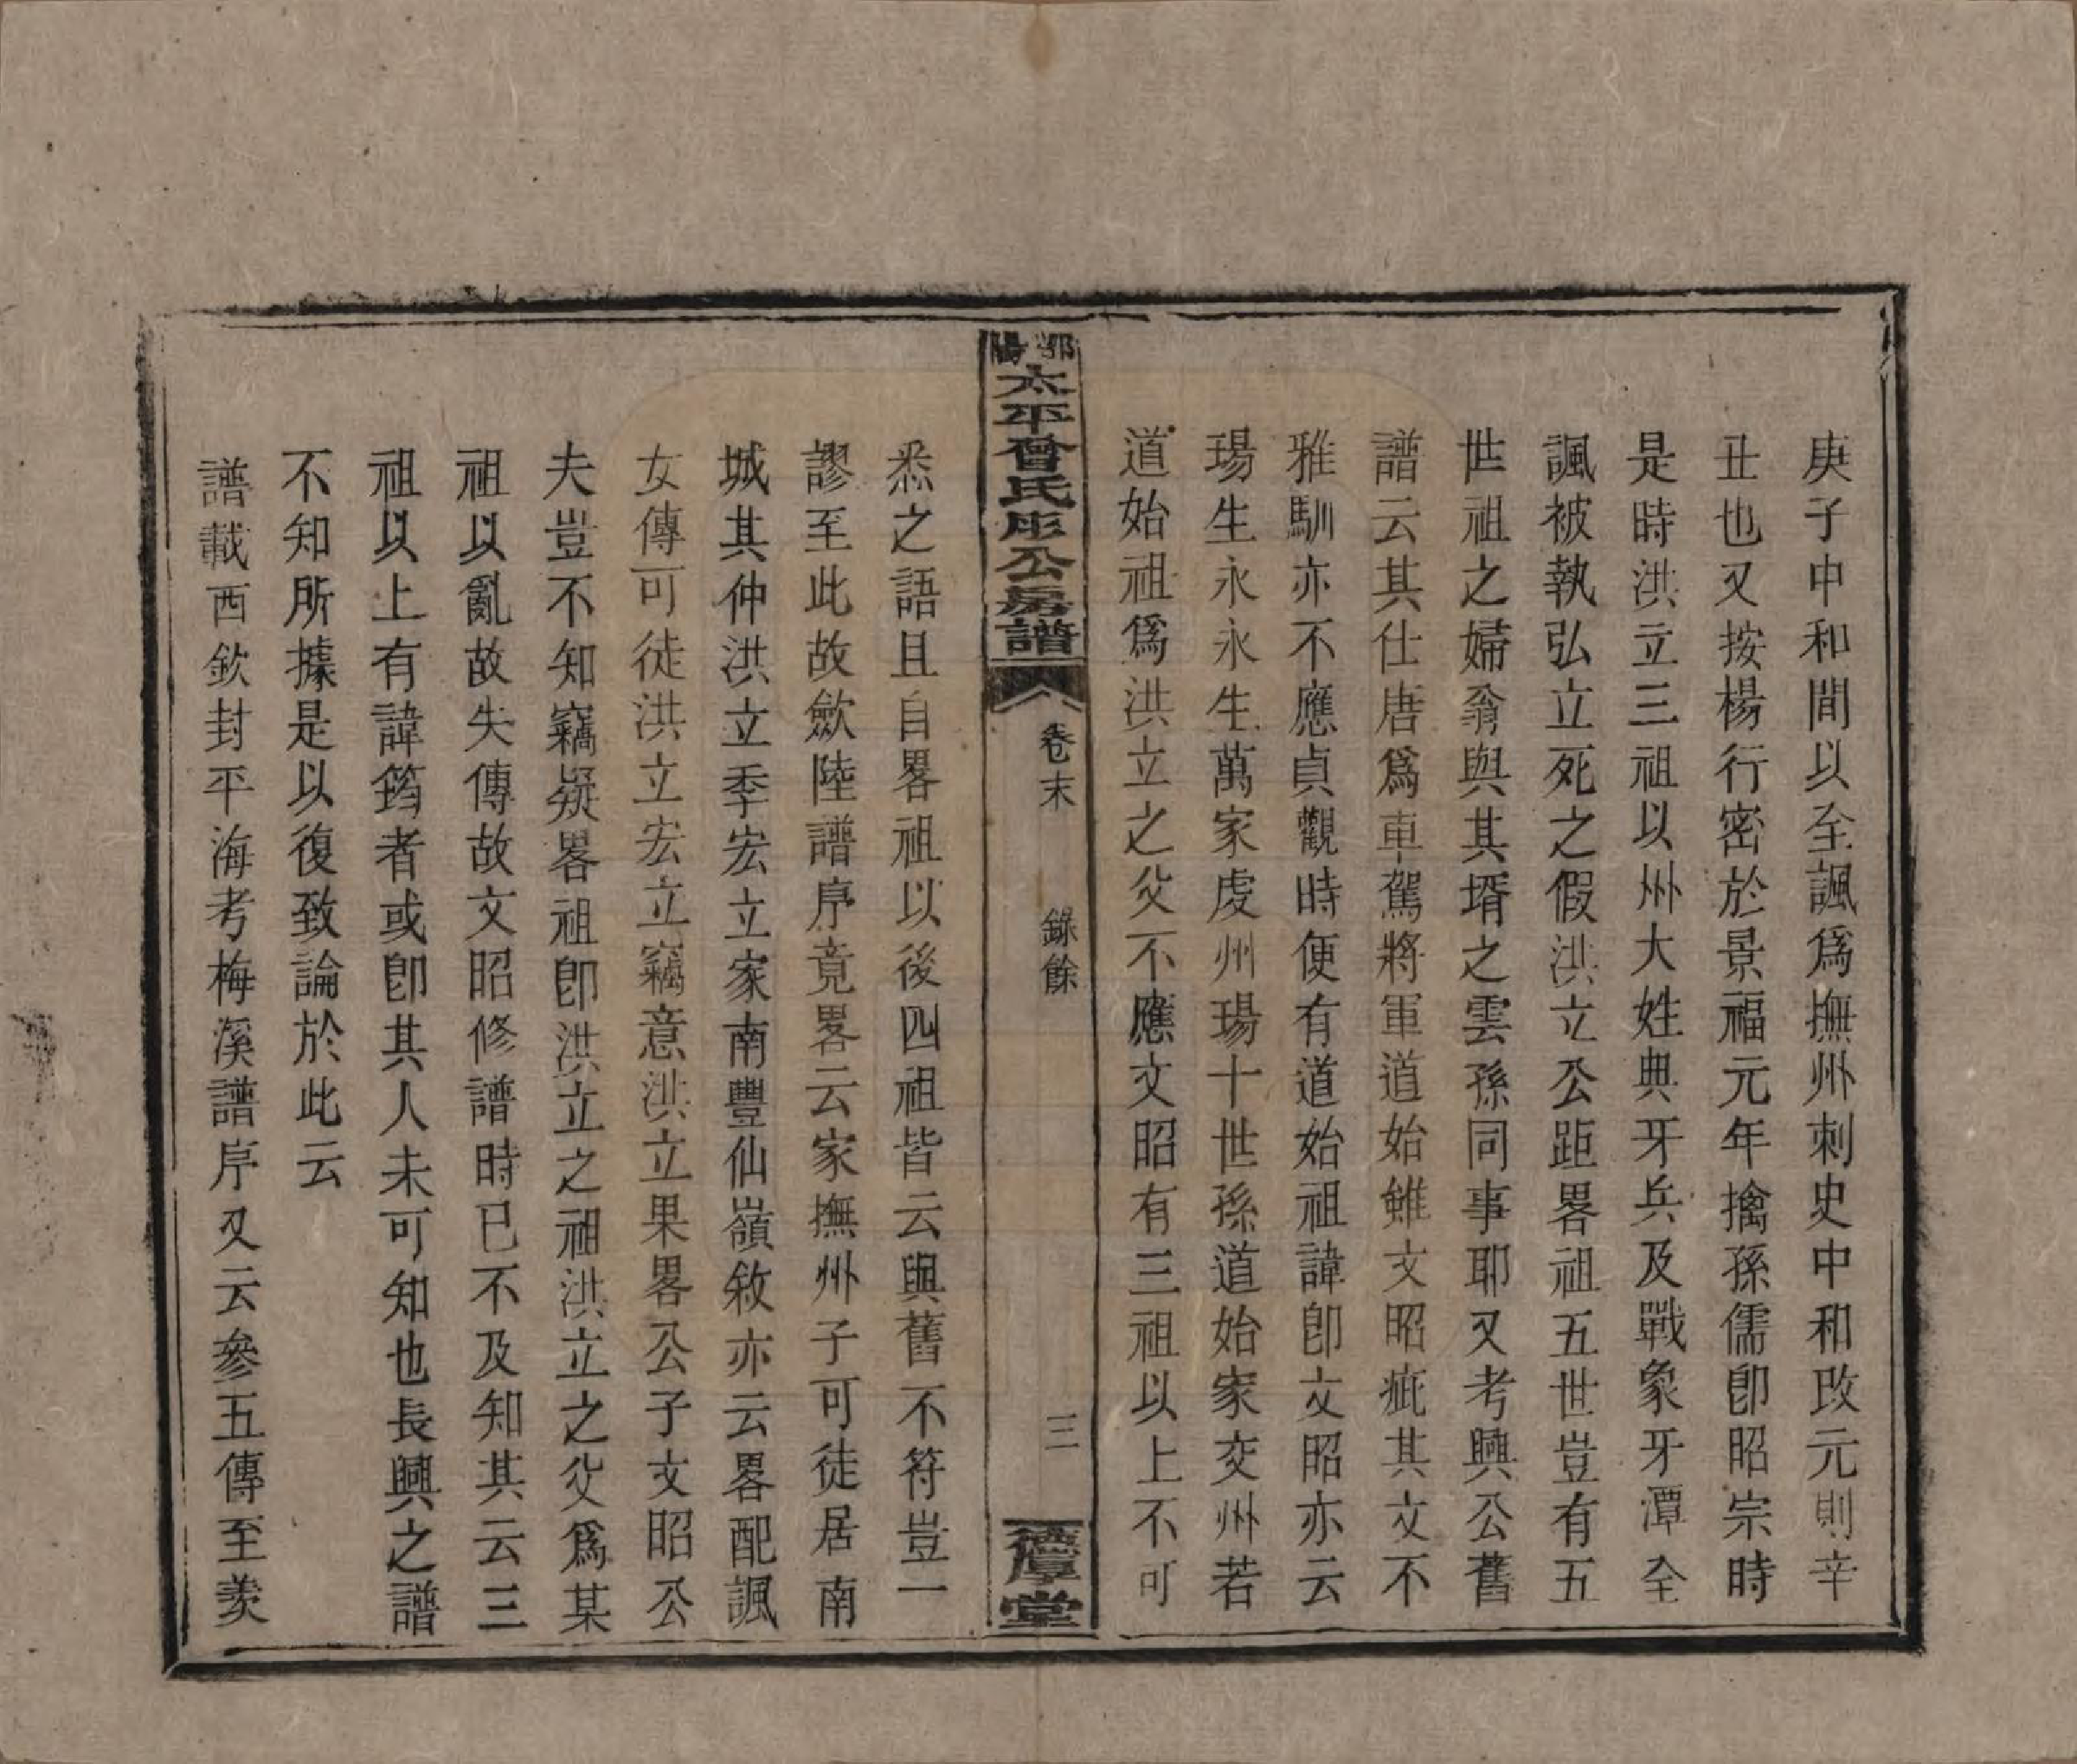 庚子中和間以至諷爲撫州刺史中和改元則辛
丑也又按楊行密於景福元年擒孫儒卽昭宗時
是時洪立三祖以州大姓典牙兵及戰象牙潭全
諷被執弘立死之假洪立公距畧祖五世豈有五
世祖之婦翁與其壻之雲孫同事耶又考興公舊
譜云其仕唐爲車駕將軍道始雖文昭疵其文不
雅馴亦不應貞觀時便有道始祖諱卽文昭亦云
瑒生永永生萬家虔州瑒十世孫道始家交州若
道始祖爲洪立之父不應文昭有三祖以上不可
鄂陽太平曾氏彤公房譜
卷末
錄餘
三
德厚堂
悉之語且自畧祖以後四祖皆云與舊不符豈一
謬至此故歙陸譜序竟畧云家撫州子可徒居南
城其仲洪立季宏立家南豐仙嶺敘亦云畧配諷
女傳可徒洪立宏立竊意洪立果畧公子文昭公
夫豈不知竊疑畧祖卽洪立之祖洪立之父爲某
祖以亂故失傳故文昭修譜時已不及知其云三
祖以上有諱筠者或卽其人未可知也長興之譜
不知所據是以復致論於此云
譜載西欽封平海考梅溪譜序又云參五傳至羨